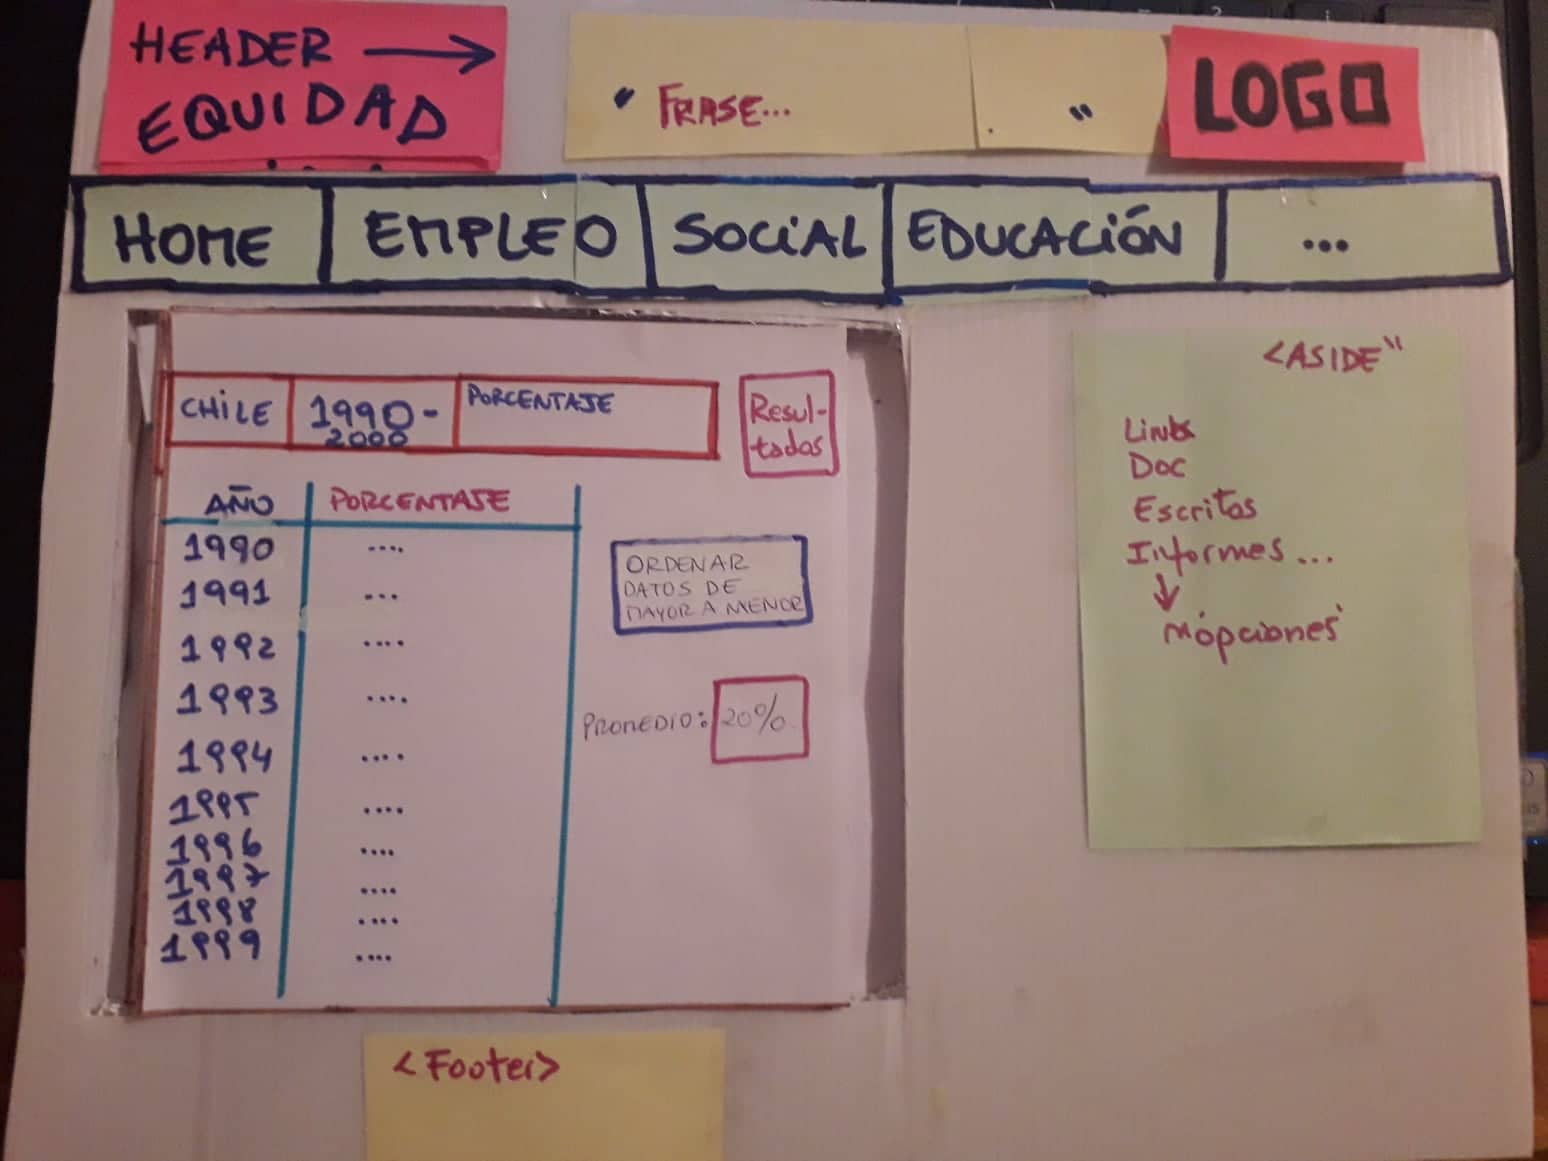 HEADER →
EQUIDAD
" FRASE... "
LOGO
HOME EMPLEO SOCIAL EDUCACIÓN ...
CHILE 1990-2000 PORCENTAJE
Resul-
tados
AÑO PORCENTAJE
1990 ....
1991 ...
1992 ....
1993 ....
1994 ....
1995 ....
1996 ....
1997 ....
1998 ....
1999 ....
ORDENAR
DATOS DE
MAYOR A MENOR
PROMEDIO: 20%
<ASIDE"
Links
Doc
Escritos
Informes ...
↓
<Footer>